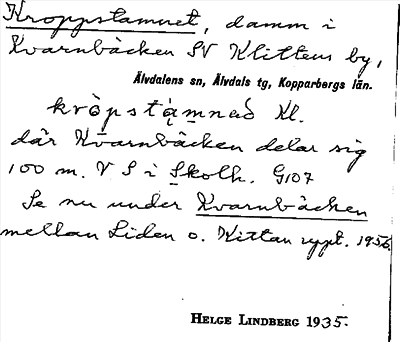 Kroppstamnet, damm i
Kvarnbäcken SV Klittens by,
Älvdalens sn, Älvdals tg, Kopparbergs län.
kròpstạ̀mnəð Kl.
där Kvarnbäcken delar sig
100 m. V S i Skolh. G107
Se nu under Kvarnbäcken
mellan Liden o. Kittan uppt. 1956.
HELGE LINDBERG 1935.